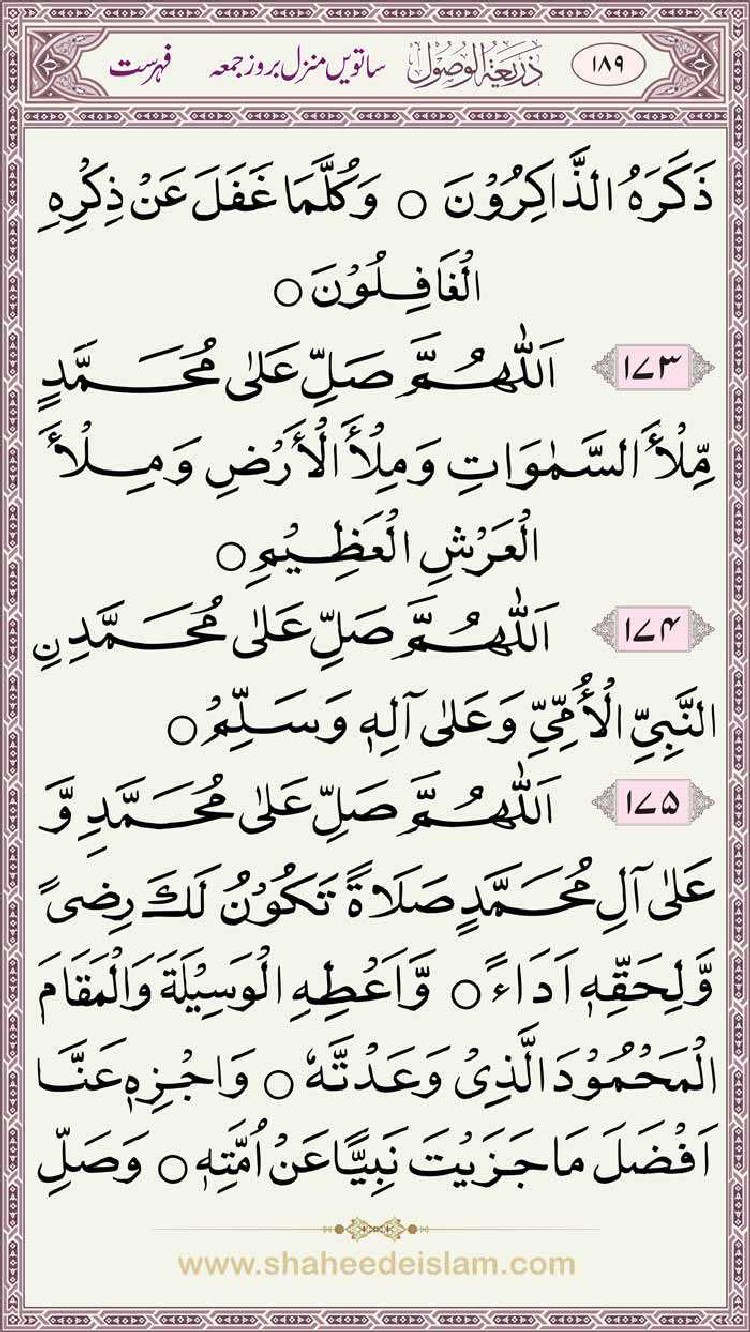 ۱۸۹ ذَرِیْعَۃُ الْوُصُوْل ساتویں منزل بروز جمعہ فہرست
ذَكَرَهُ الذَّاكِرُوْنَ ○ وَكُلَّمَا غَفَلَ عَنْ ذِكْرِهِ
الْغَافِلُوْنَ ○
۱۷۳ اَللّٰهُمَّ صَلِّ عَلٰى مُحَمَّدٍ
مِّلْأَ السَّمٰوَاتِ وَمِلْأَ الْأَرْضِ وَمِلْأَ
الْعَرْشِ الْعَظِيْمِ ○
۱۷۴ اَللّٰهُمَّ صَلِّ عَلٰى مُحَمَّدِنِ
النَّبِيِّ الْأُمِّيِّ وَعَلٰى آلِهٖ وَسَلِّمْ ○
۱۷۵ اَللّٰهُمَّ صَلِّ عَلٰى مُحَمَّدٍ وَّ
عَلٰى آلِ مُحَمَّدٍ صَلَاةً تَكُوْنُ لَكَ رِضىً
وَّلِحَقِّهٖ اَدَاءً ○ وَّاَعْطِهِ الْوَسِيْلَةَ وَالْمَقَامَ
الْمَحْمُوْدَ الَّذِىْ وَعَدْتَّهٗ ○ وَاجْزِهٖ عَنَّا
اَفْضَلَ مَا جَزَيْتَ نَبِيًّا عَنْ اُمَّتِهٖ ○ وَصَلِّ
www.shaheedeislam.com